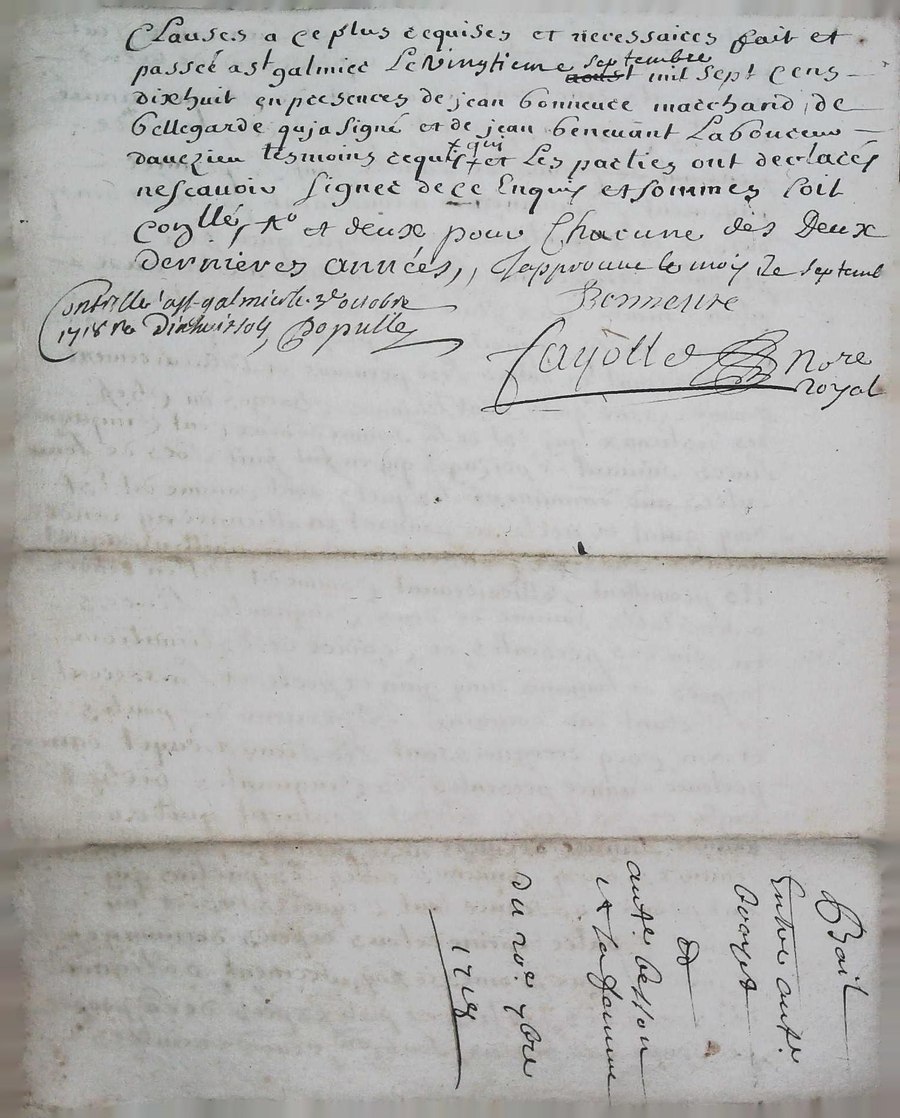 Clauses a ce plus requises et necessaires fait et
passée a st galmier Le vingtieme aoust septembre mil sept cens
dixhuit en presences de jean bonneure marchand de
bellegarde qui a signé et de jean benevant Laboureur
dauezieu tesmoins requis et Les parties ont declarés
nescavoir signer de ce Enquis et sommes soit
conllé, et deux pour Chacune des Deux
dernières années,, J'approuue le mois de septemb
Bonneure
Controllé a st galmier le 3e octobre
1718 Rs Dixhuit sols Populle
Fayolle Nore
royal
Bail
Entre ante
bouyet
&
ante besson
et la femme
Du 20e 7bre
1718